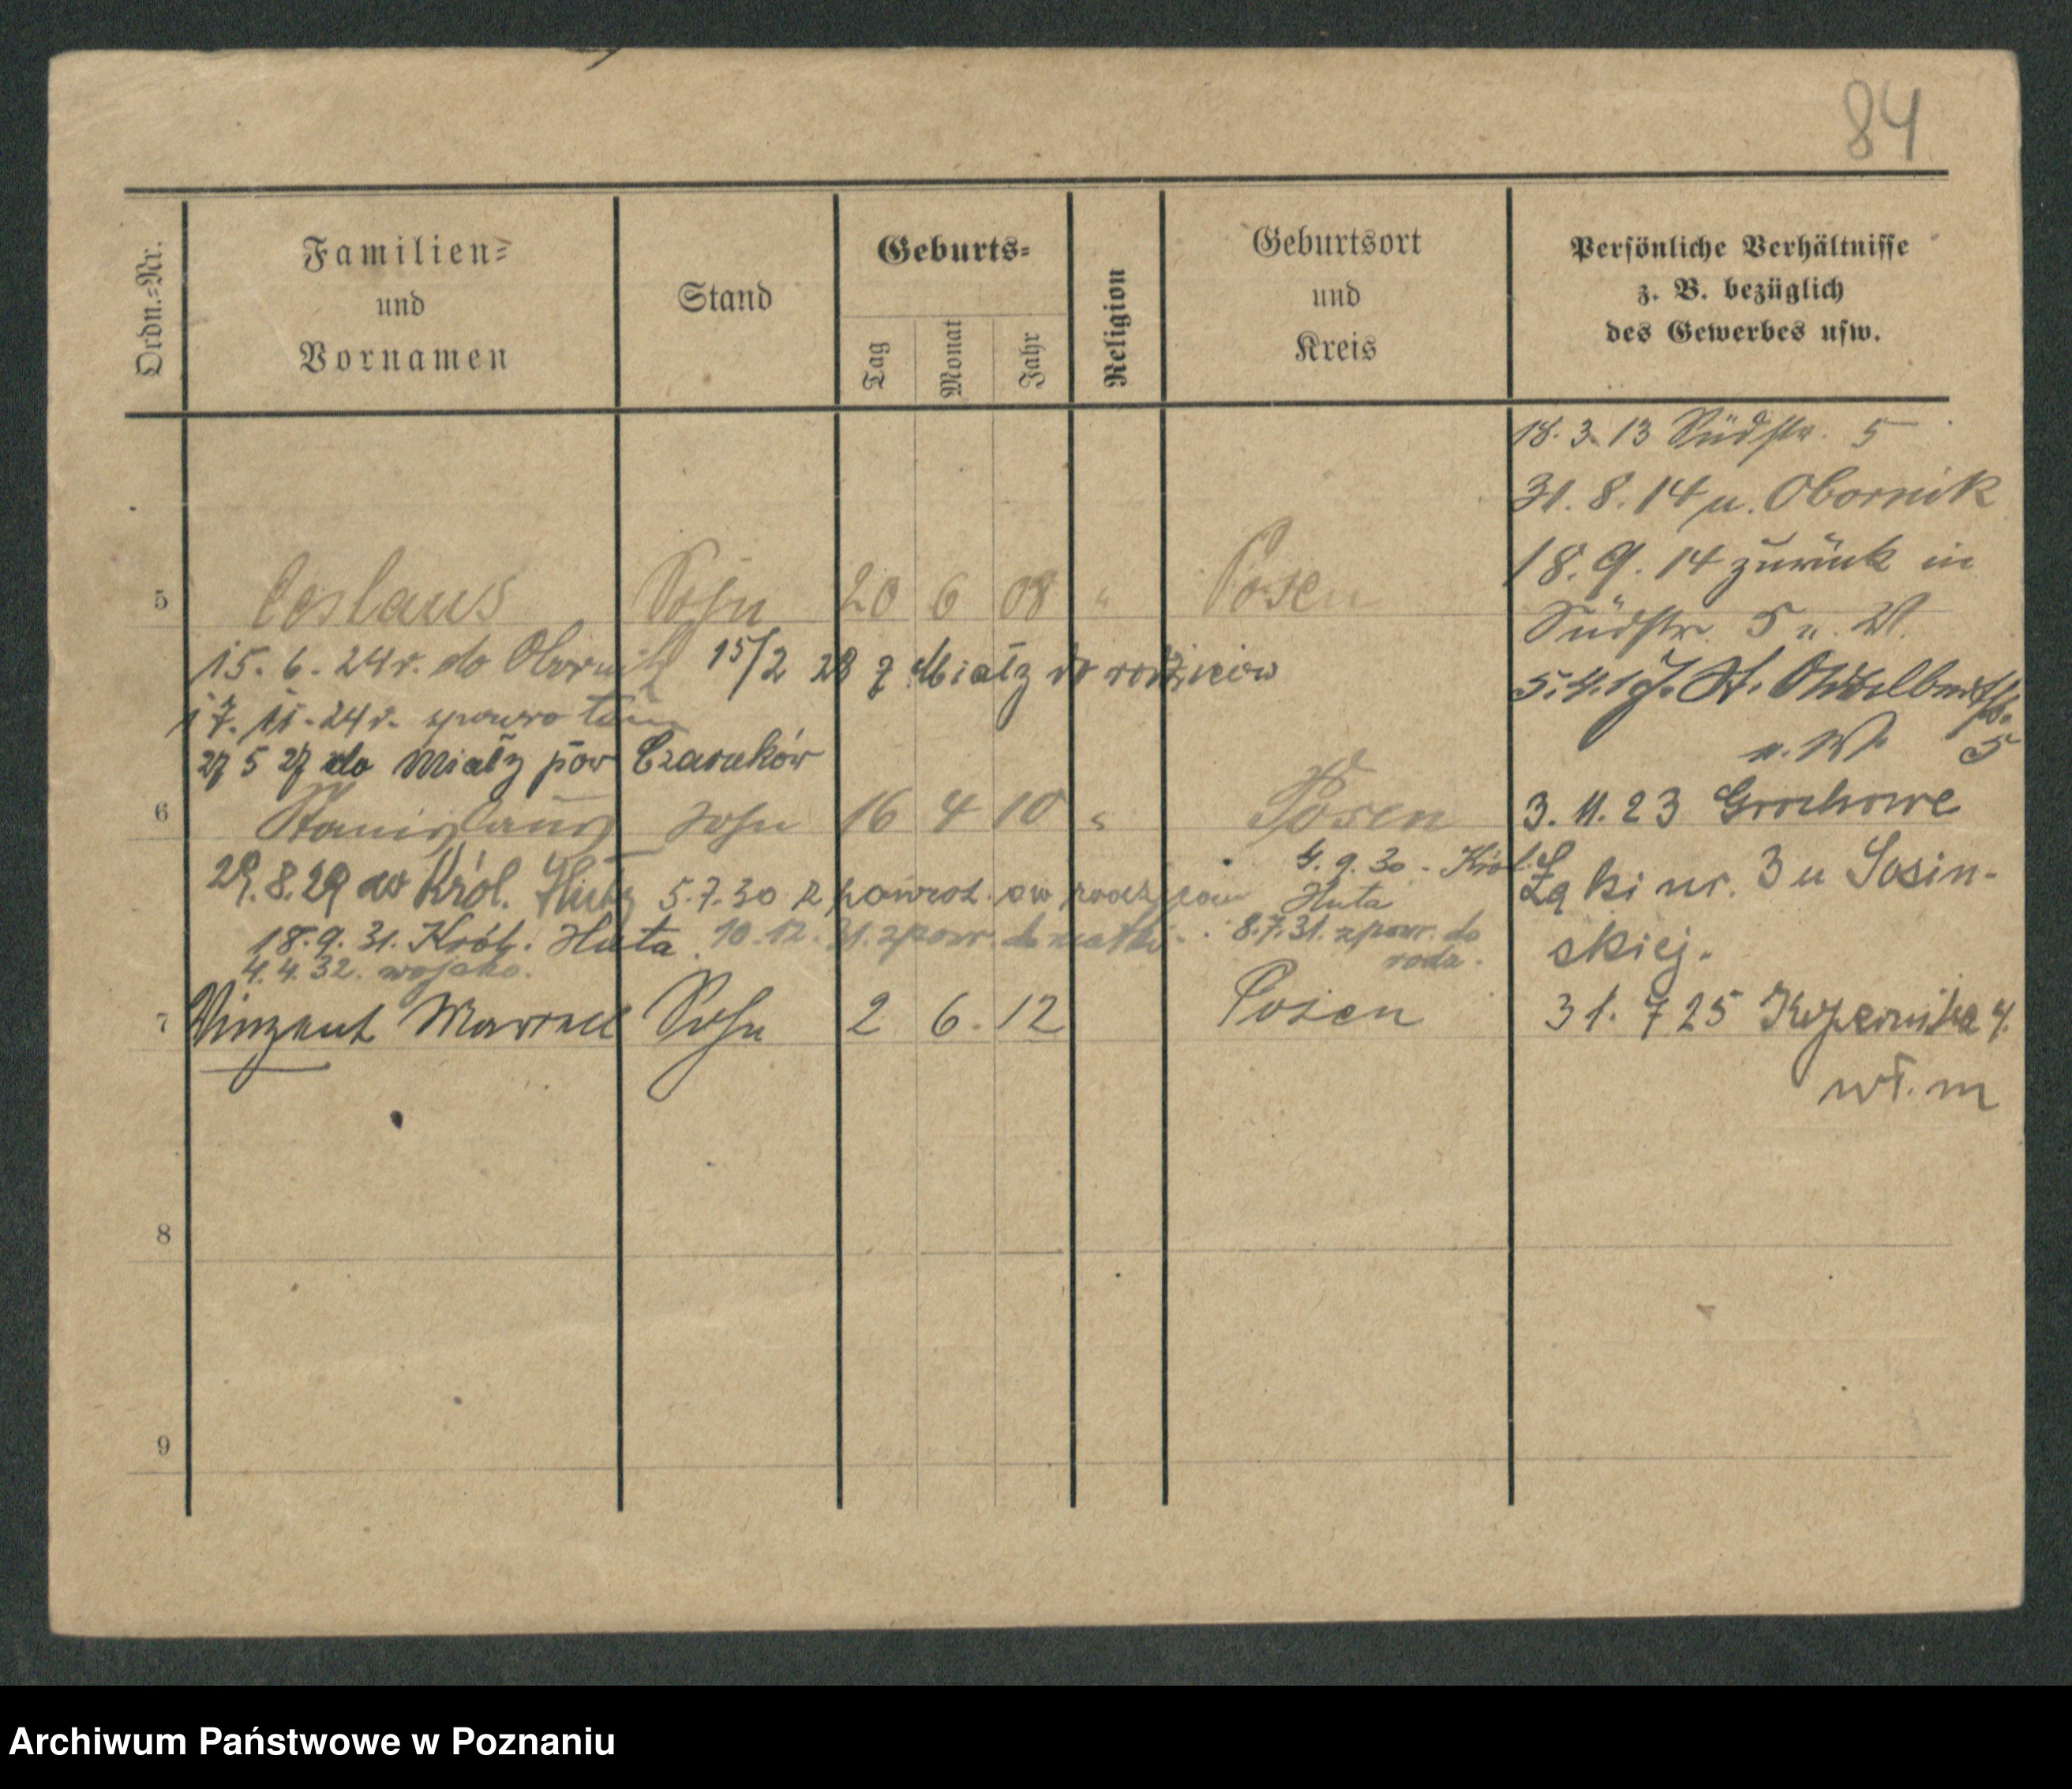 84
Ordn.=Nr.
Familien=
und
Vornamen
Stand
Geburts=
Tag
Monat
Jahr
Religion
Geburtsort
und
Kreis
Persönliche Verhältnisse
z. B. bezüglich
des Gewerbes usw.
18. 3. 13 Südstr. 5
31. 8. 14 n. Obornik
18. 9. 14 zurück in
Südstr. 5 n. W.
5 Ceslaus Sohn 20 6 08 " Posen
15. 6. 24 r. do Obornik 15/2 28 z Miały do rodziców
17. 11. 24 r. tam
27 5 27 do Miały pow Czarnków
n. W. 5
6 Stanislaus Sohn 16 4 10 " Posen
3. 11. 23 Grochowe
Łąki nr. 3 u Sosin-
skiej.
29. 8. 29 do Król. Huty 5. 7. 30 z powrot.
4. 9. 30 - Król.
Huta
18. 9. 31. Król. Huta. 10. 12. 31. zpow. do matki
8. 7. 31. zpow. do
rodz.
4. 4. 32. wojsko.
7 Vinzent Marcel Sohn 2 6. 12 Posen
31. 7 25 Kopernika 4.
wł. m
8
9
Archiwum Państwowe w Poznaniu